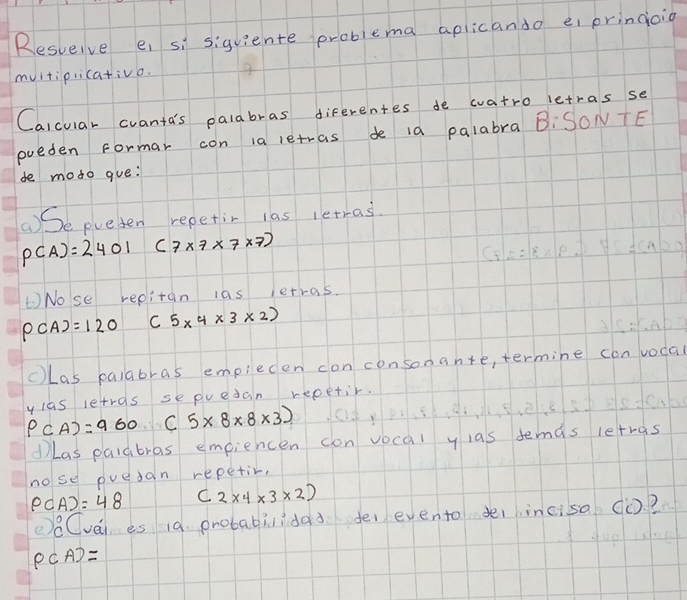 Resuelve el si siguiente problema aplicando el principio
multiplicativo.
Calcular cuantas palabras diferentes de cuatro letras se
pueden formar con la letras de la palabra BiSONTE
de modo que:
a) Se pueden repetir las letras.
P(A)=2401 (7x7x7x7)
b) No se repitan las letras.
P(A)=120 (5x4x3x2)
c) Las palabras empiecen con consonante, termine con vocal
y las letras se puedan repetir.
P(A)=960 (5x8x8x3)
d) Las palabras empiencen con vocal y las demás letras
no se puedan repetir.
P(A)=48 (2x4x3x2)
e) ¿Cuál es la probabilidad del evento del inciso (c)?
P(A)=